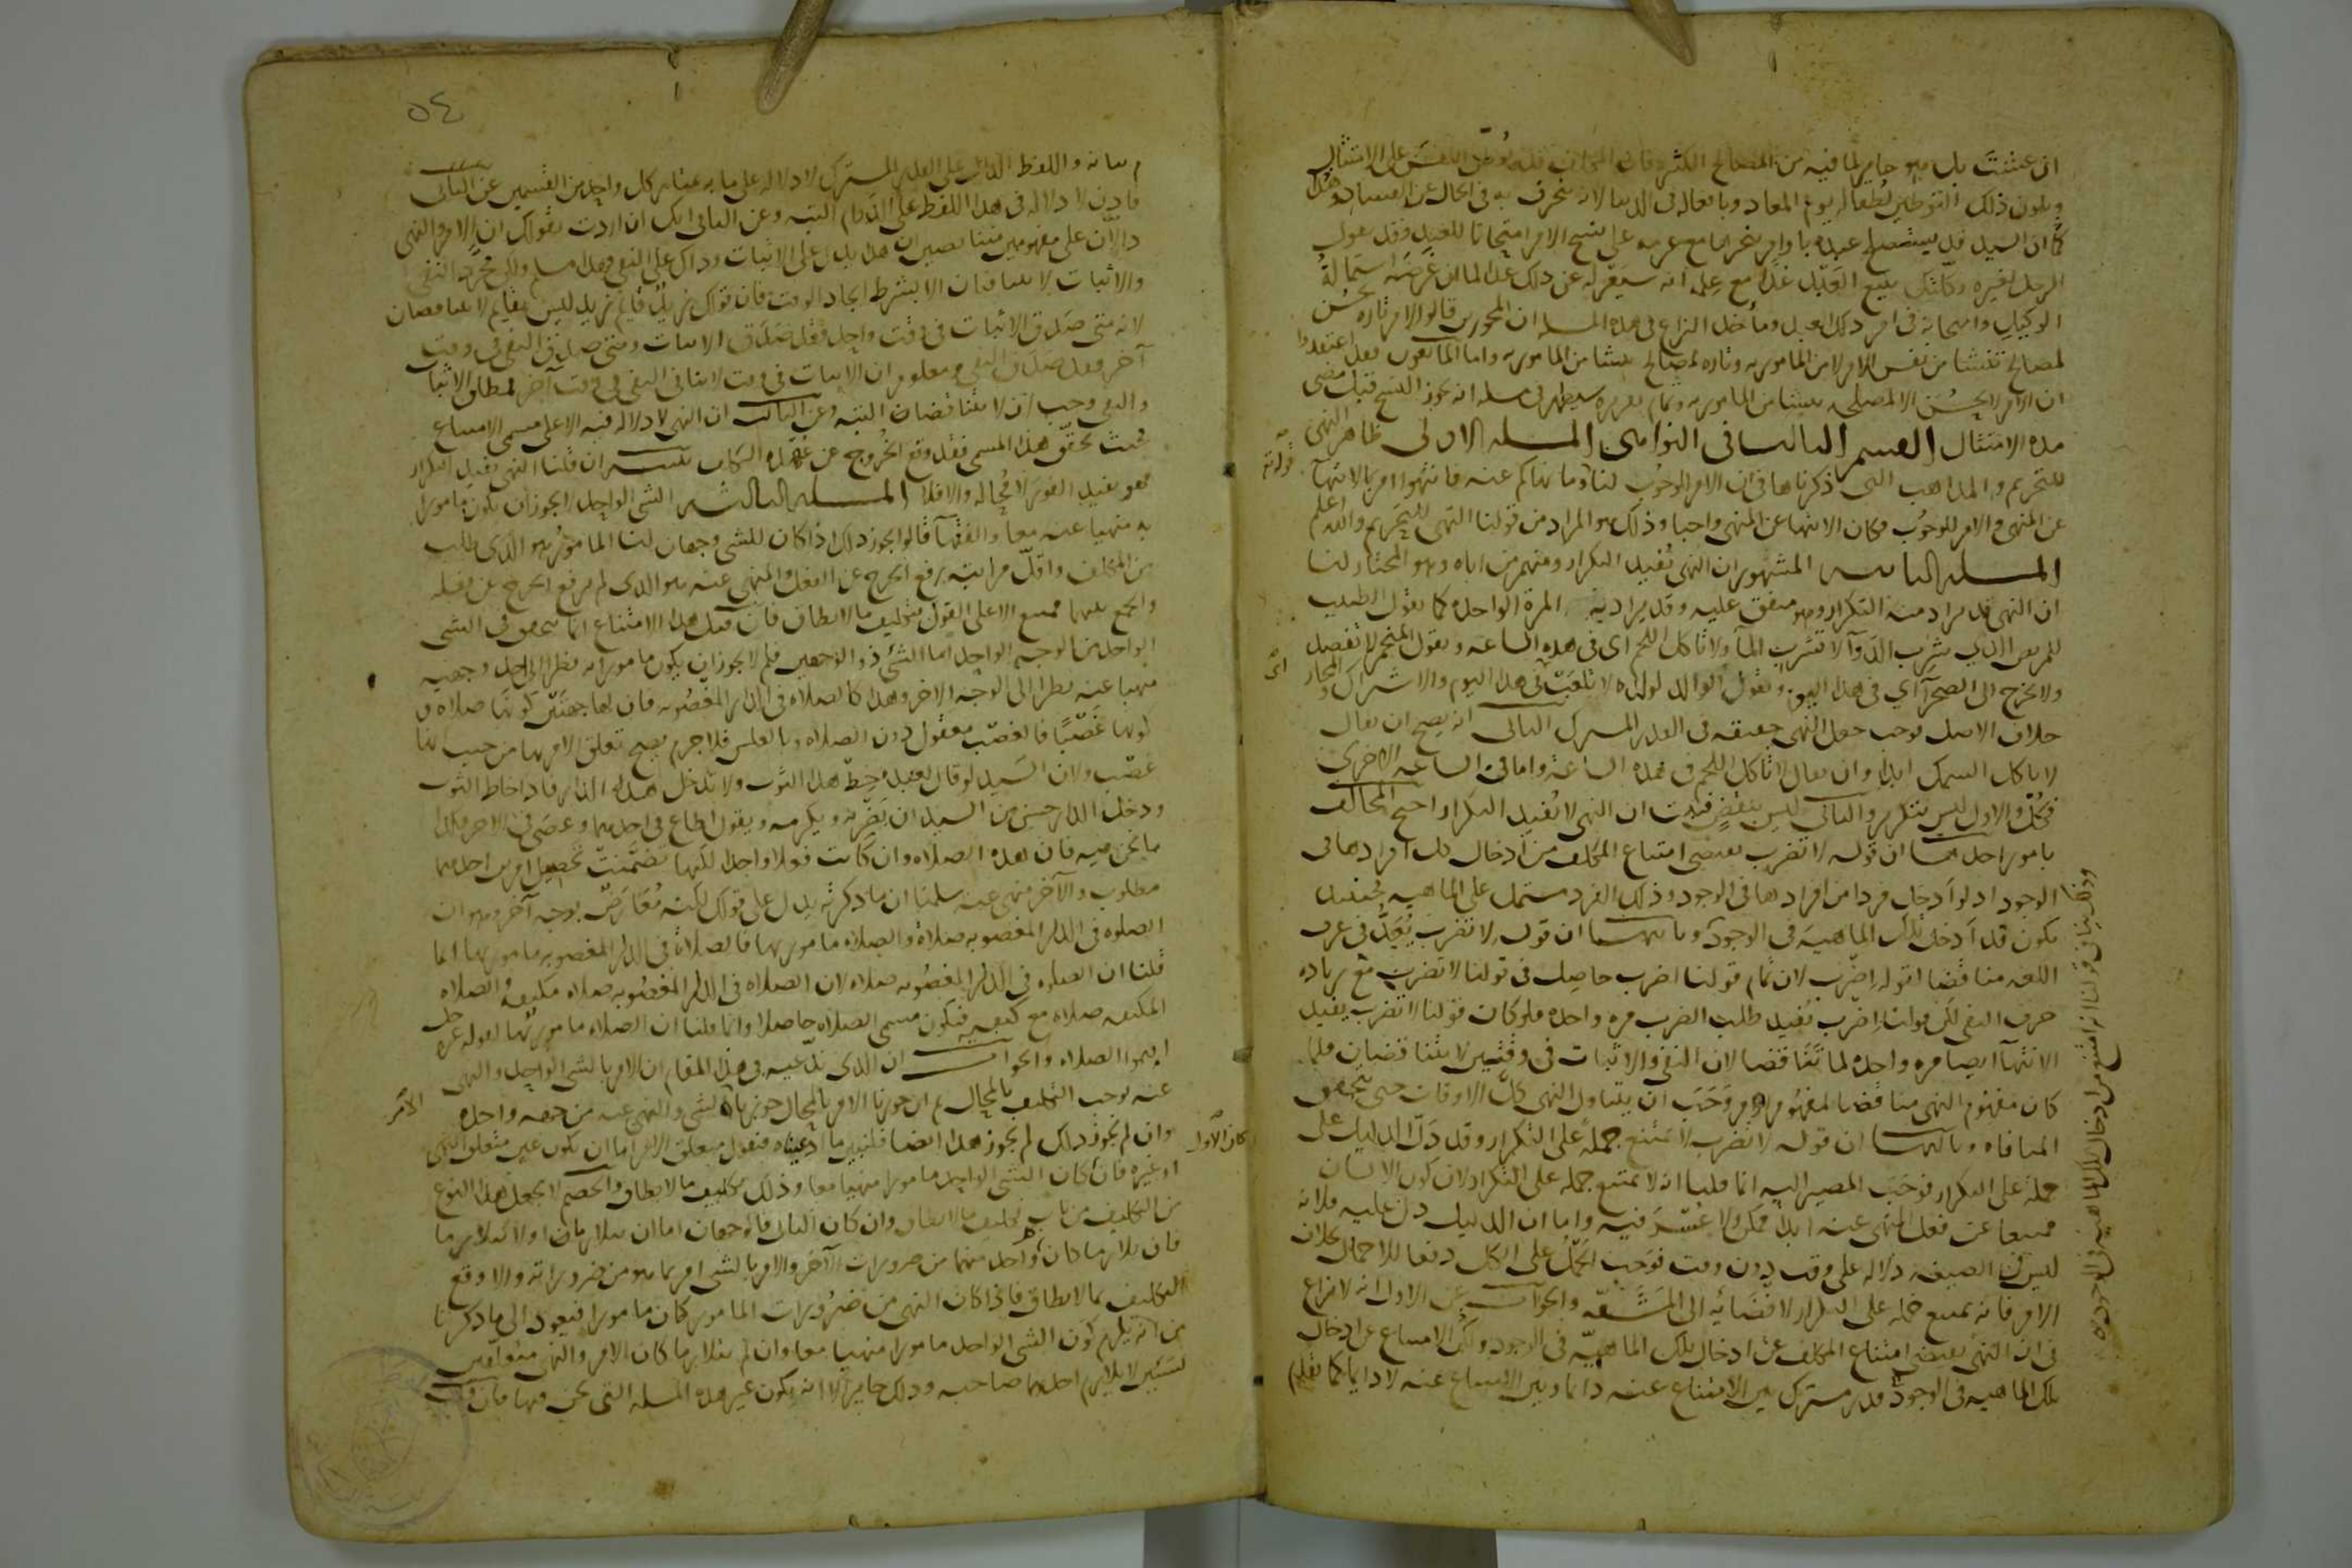 ان عشت بل هو جايز لما فيه من المصالح الكثيره فان المكلف قد يوطن النفس على الامتثال
ويكون ذلك التوطين لطفا له يوم المعاد وبا فعاله فى الدنيا لانه ينحرف به فى الحال عن الفساد وهذا
كما ان السيد قد يستصلح عبده باوامر ينجزها مع عزمه على نسخ الامر امتحانا للعبد وقد يقول
الرجل لغيره وكلتك ببيع العبد غدا مع علمه انه سيعزله عن ذلك غدا لما ان غرضه استمالة
الوكيل وامتحانه فى امر ذلك العبد وماخذ النزاع فى هذه المسله ان المجوزين قالوا الامر تاره يحسن
لمصالح تنشا من نفس الامر لا من المامور به وتاره لمصالح تنشا من المامور به واما المانعون فقد اعتقدوا
ان الامر لا يحسن الا لمصلحه تنشا من المامور به وتمام تقريره سيظهر فى مسله انه يجوز النسخ قبل مضى
مده الامتثال القسم الثالث فى النواهى المسله الاولى ظاهر النهى
للتحريم والمذاهب التى ذكرناها فى ان الامر للوجوب لنا وما نهاكم عنه فانتهوا امر بالانتها
قوله تع
عن المنهى والامر للوجوب فكان الانتها عن المنهى واجبا وذلك هو المراد من قولنا النهى للتحريم والله اعلم
المسله الثانيه المشهور ان النهى يفيد التكرار ومنهم من اباه وهو المختار لنا
ان النهى قد يراد منه التكرار وهو متفق عليه وقد يراد به المرة الواحده كما يقول الطبيب
للمريض الذى شرب الدوآ لا تشرب المآ ولا تاكل اللحم اى فى هذه الساعه ويقول المنجم لا تفصد
ولا تخرج الى الصحرآ اى فى هذا اليوم ويقول الوالد لولده لا تلعب فى هذا اليوم والاشتراك والمجاز
خلاف الاصل فوجب جعل النهى حقيقه فى القدر المشترك الثانى انه يصح ان يقال
لا تاكل السمك ابدا وان يقال لا تاكل اللحم فى هذه الساعه واما فى الساعه الاخرى
فكل والاول ليس بتكرير والثانى ليس بنقض فثبت ان النهى لا يفيد التكرار احتج المخالف
بامور احدها ان قوله لا تضرب يقتضى امتناع المكلف من ادخال كل افرادها فى
الوجود اذ لو ادخل فردا من افرادها فى الوجود وذلك الفرد مشتمل على الماهيه فحينئذ
يكون قد ادخل تلك الماهيه فى الوجود وثانيها ان قوله لا تضرب يعد فى عرف
اللغه مناقضا لقوله اضرب لان تمام قولنا اضرب حاصل فى قولنا لا تضرب مع زياده
حرف النفى لكن قولنا اضرب يفيد طلب الضرب مره واحده فلو كان قولنا لا تضرب يفيد
الانتهآ ايضا مره واحده لما تناقضا لان النفى والاثبات فى وقتين لا يتناقضان فلما
كان مفهوم النهى مناقضا لمفهوم الامر وجب ان يتناول النهى كل الاوقات حتى يتحقق
المنافاه وثالثها ان قوله لا تضرب لا يمتنع حمله على التكرار وقد دل الدليل على
حمله على التكرار فوجب المصير اليه انما قلنا انه لا يمتنع حمله على التكرار لان كون الانسان
ممتنعا عن فعل المنهى عنه ابدا ممكن ولا عسر فيه واما ان الدليل دل عليه فلانه
ليس فى الصيغه دلاله على وقت دون وقت فوجب الحمل على الكل دفعا للاجمال بخلاف
الامر فانه يمتنع حمله على التكرار لافضائه الى المشقه والجواب عن الاول انه لا نزاع
فى ان النهى يقتضى امتناع المكلف عن ادخال تلك الماهيه فى الوجود ولكن الامتناع عن ادخال
تلك الماهيه فى الوجود قدر مشترك بين الامتناع عنه دائما وبين الامتناع عنه لا دايما كما تقدم
٥٤
بيانه واللفظ الدال على القدر المشترك لا دلاله على ما به يمتاز كل واحد من القسمين عن الثانى
فاذن لا دلاله فى هذا اللفظ على الدوام البته وعن الثانى انك ان اردت بقولك ان الامر والنهى
دالان على مفهومين متناقضين ان هذا يدل على الاثبات وذاك على النفى فهذا مسلم ولكن مجرد النفى
والاثبات لا يتنافيان الا بشرط اتحاد الوقت فان قولك زيد قايم زيد ليس بقايم لا يتناقضان
لانه متى صدق الاثبات فى وقت واحد فقد صدق الاثبات ومتى صدق النفى فى وقت
آخر فقد صدق النفى ومعلوم ان الاثبات فى وقت لا ينافى النفى فى وقت آخر فمطلق الاثبات
والنفى وجب ان لا يتناقضان البته وعن الثالث ان النهى لا دلاله فيه الا على مسمى الامتناع
فحيث تحقق هذا المسمى فقد وقع الخروج عن عهده التكليف تنبيه ان قلنا النهى يفيد التكرار
فهو يفيد الفور لا محاله والا فلا المسله الثالثه الشى الواحد لا يجوز ان يكون مامورا
به منهيا عنه معا والفقهآ قالوا يجوز ذلك اذا كان للشى وجهان لنا المامور به هو الذى طلب
من المكلف واقل مراتبه رفع الحرج عن الفعل والمنهى عنه هو الذى لم يرفع الحرج عن فعله
والجمع بينهما ممتنع الا على القول بتكليف ما لا يطاق فان قيل هذا الامتناع انما يتحقق فى الشى
الواحد من الوجه الواحد اما الشئ ذو الوجهين فلم لا يجوز ان يكون مامورا به نظرا الى احد وجهيه
منهيا عنه نظرا الى الوجه الاخر وهذا كالصلاه فى الدار المغصوبه فان لها جهتين كونها صلاه و
كونها غصبا فالغصب معقول دون الصلاه وبالعكس فلا جرم يصح تعلق الامر بها من حيث
غصب ولان السيد لو قال لعبده خط هذا الثوب ولا تدخل هذه الدار فاذا خاط الثوب
ودخل الدار حسن من السيد ان يضربه ويكرمه ويقول اطاع فى احدهما وعصى فى الاخر فكذا
ما نحن فيه فان هذه الصلاه وان كانت فعلا واحدا لكنها تضمنت تحصيل امرين احدهما
مطلوب والآخر منهى عنه سلمنا ان ما ذكرته يدل على قولك لكنه معارض بوجه آخر وهو ان
الصلوه فى الدار المغصوبه صلاة والصلاه مامور بها فالصلاة فى الدار المغصوبه مامور بها انما
قلنا ان الصلوه فى الدار المغصوبه صلاه لان الصلاه فى الدار المغصوبه صلاه مكيفه والصلاه
المكيفه صلاه مع كيفيه فيكون مسمى الصلاه حاصلا وانما قلنا ان الصلاه مامور بها لقوله عز وجل
اقيموا الصلاه والجواب ان الذى ندعيه فى هذا المقام ان الامر بالشى الواحد والنهى
عنه يوجب التكليف بالمحال ثم ان جوزنا الامر بالمحال جوزنا الامر بالشى والنهى عنه من جهه واحده
وان لم يجوز ذلك لم يجوز هذا ايضا فلنبين ما ادعيناه فنقول متعلق الامر اما ان يكون عين متعلق النهى
او غيره فان كان الاول كان الشى الواحد مامورا منهيا معا وذلك تكليف ما لا يطاق والخصم لا يجعل هذا النوع
من التكليف من باب تكليف ما لا يطاق وان كان الثانى فالوجهان اما ان يتلازمان او لا يتلازما
فان تلازما كان واحد منهما من ضرورات الآخر والامر بالشى امر بما هو من ضروراته والا وقع
التكليف بما لا يطاق فاذا كان النهى من ضرورات المامور كان مامورا فيعود الى ما ذكرنا
من انه يلزم كون الشى الواحد مامورا منهيا معا وان لم يتلازما كان الامر والنهى متعلقين
بشيئين لا يلازم احدهما صاحبه وذلك جايز الا انه يكون غير هذه المسله التى نحن فيها فان قلت